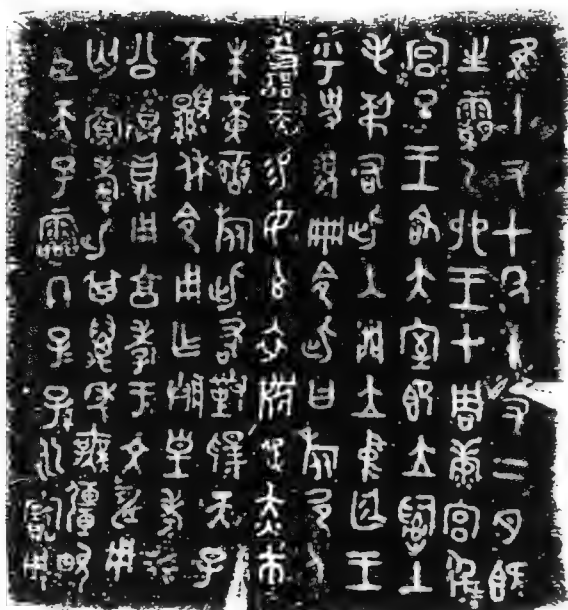 隹十又七年十又二月既
生霸乙卯王才周康宮徲
宮旦王各大室即立𤔲土
毛叔右此入門立中廷王
乎史翏冊令此曰旅邑人
善夫易女玄衣黹屯赤巿
朱黃䜌旂此敢對揚天子
不顯休令用乍朕皇考癸
公尊鼎用享孝于文神用
匄眉壽此其萬年無疆畯
臣天子霝冬子子孫孫永
寶用